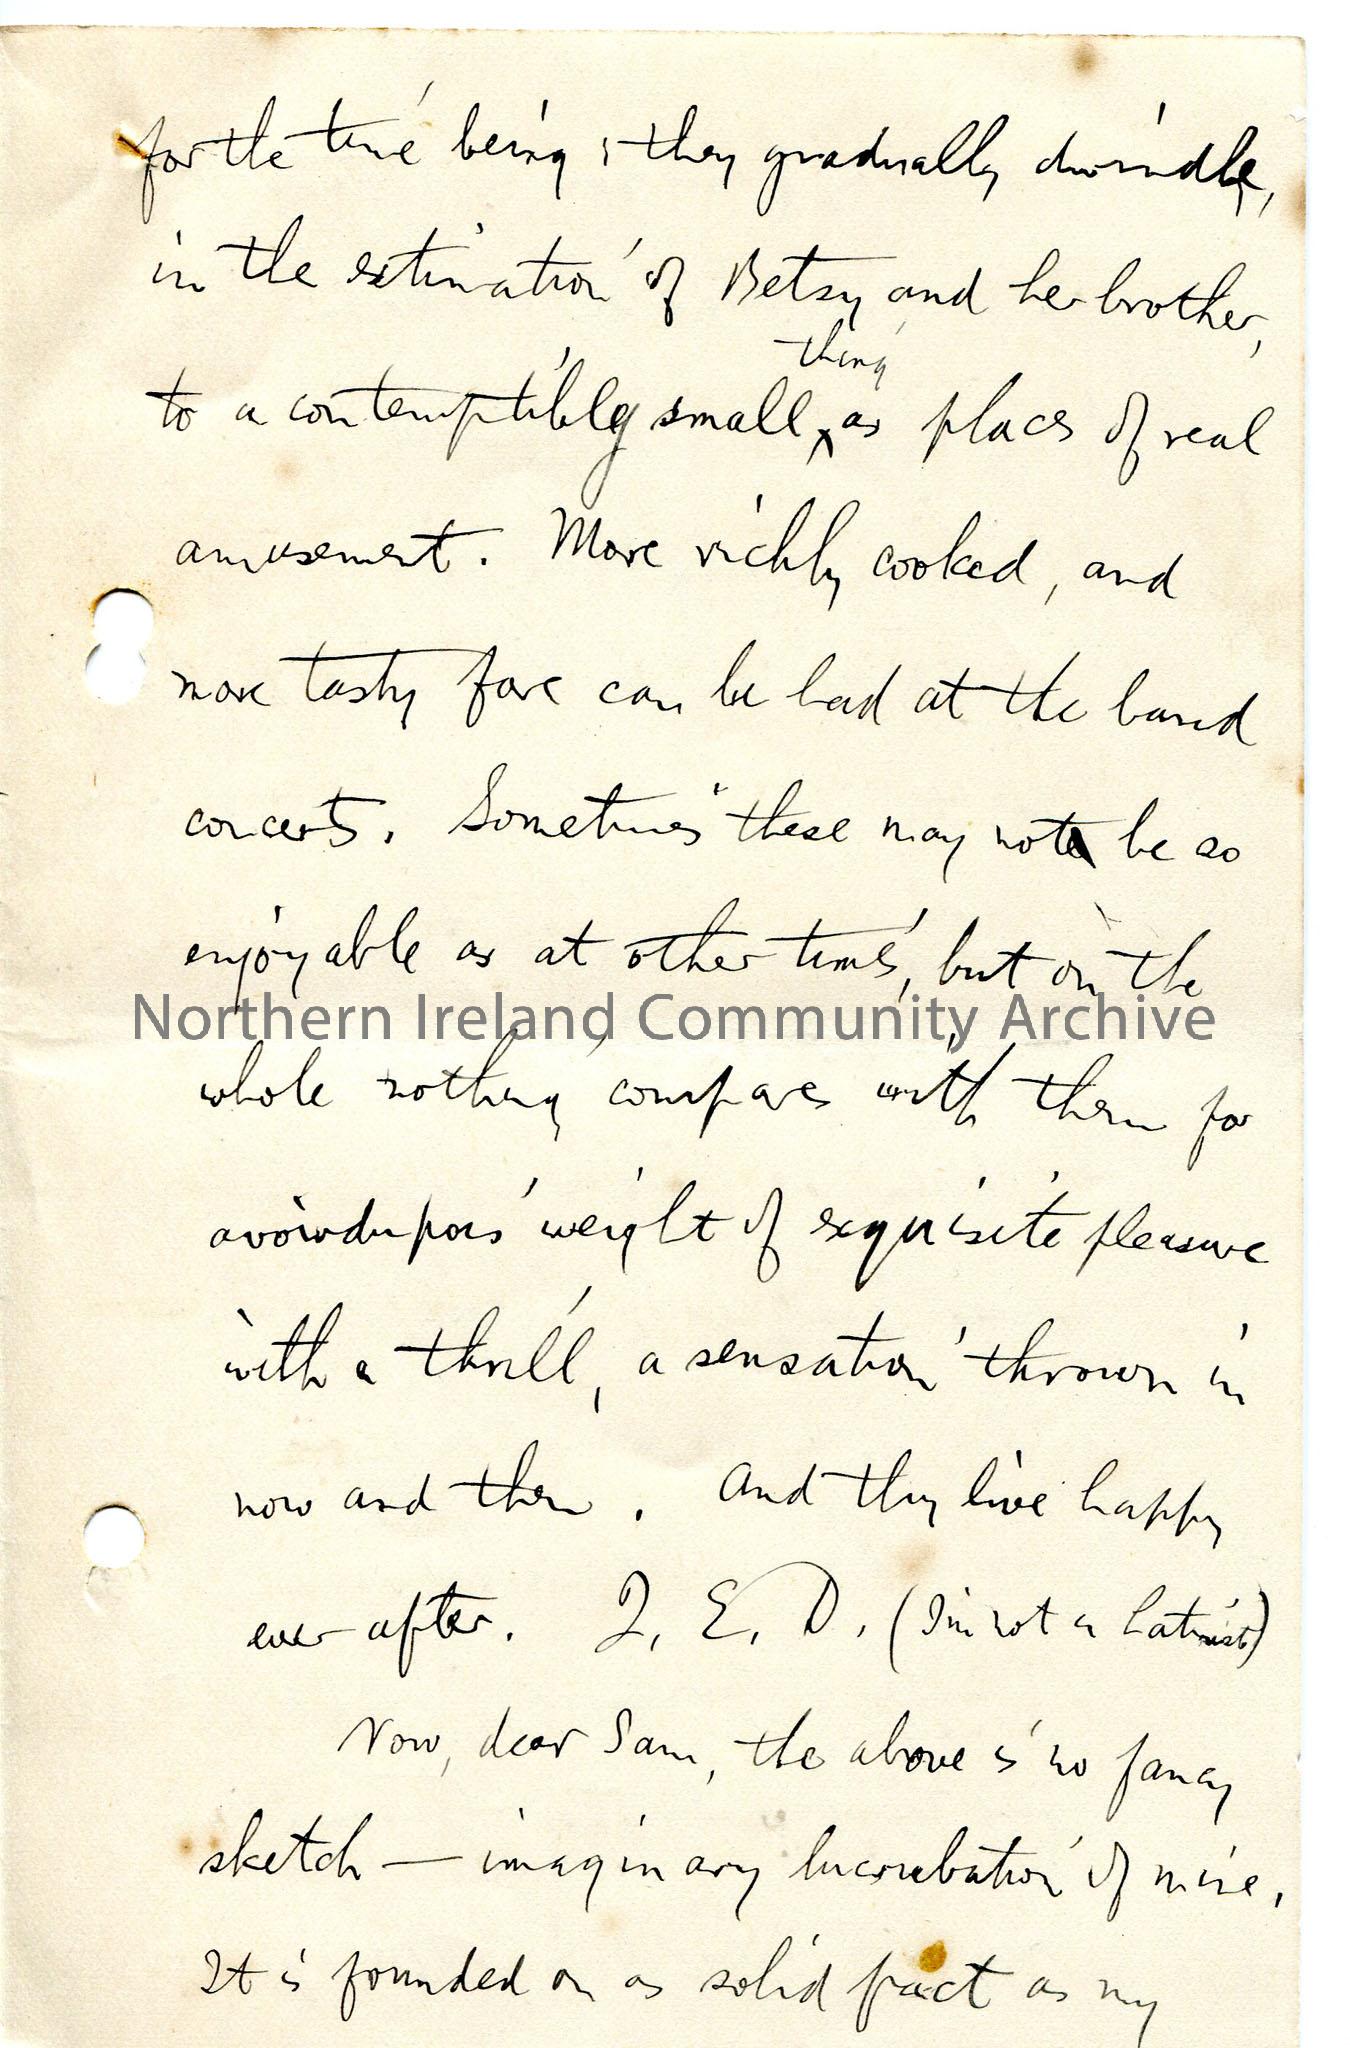 for the time being; they gradually dwindle,
in the estimation of Betsy and her brother,
thing
to a contemptibly small as places of real
amusement. More richly cooked, and
more tasty fare can be had at the band
concerts. Sometimes these may not be so
enjoyable as at other times, but on the
Northern Ireland Community Archive
whole nothing compares with them for
avoirdupois weight of exquisite pleasure
with a thrill, a sensation thrown in
now and then. And they live happy
ever after. Q. E. D. (I'm not a Latinist)
Now, dear Sam, the above is no fancy
sketch — imaginary lucrubation of mine.
It is founded on as solid fact as my